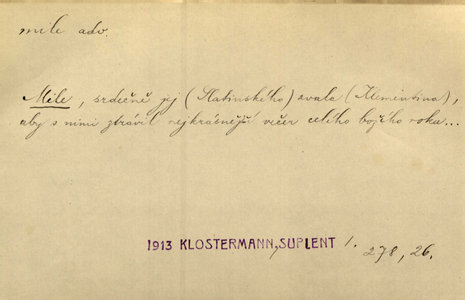 mile adv.
Mile, srdečně jej (Slatinského) zvala (Klementina),
aby s nimi ztrávil nejkrásnější večer celého božího roku...
1913 KLOSTERMANN, SUPLENT 1.
278, 26.